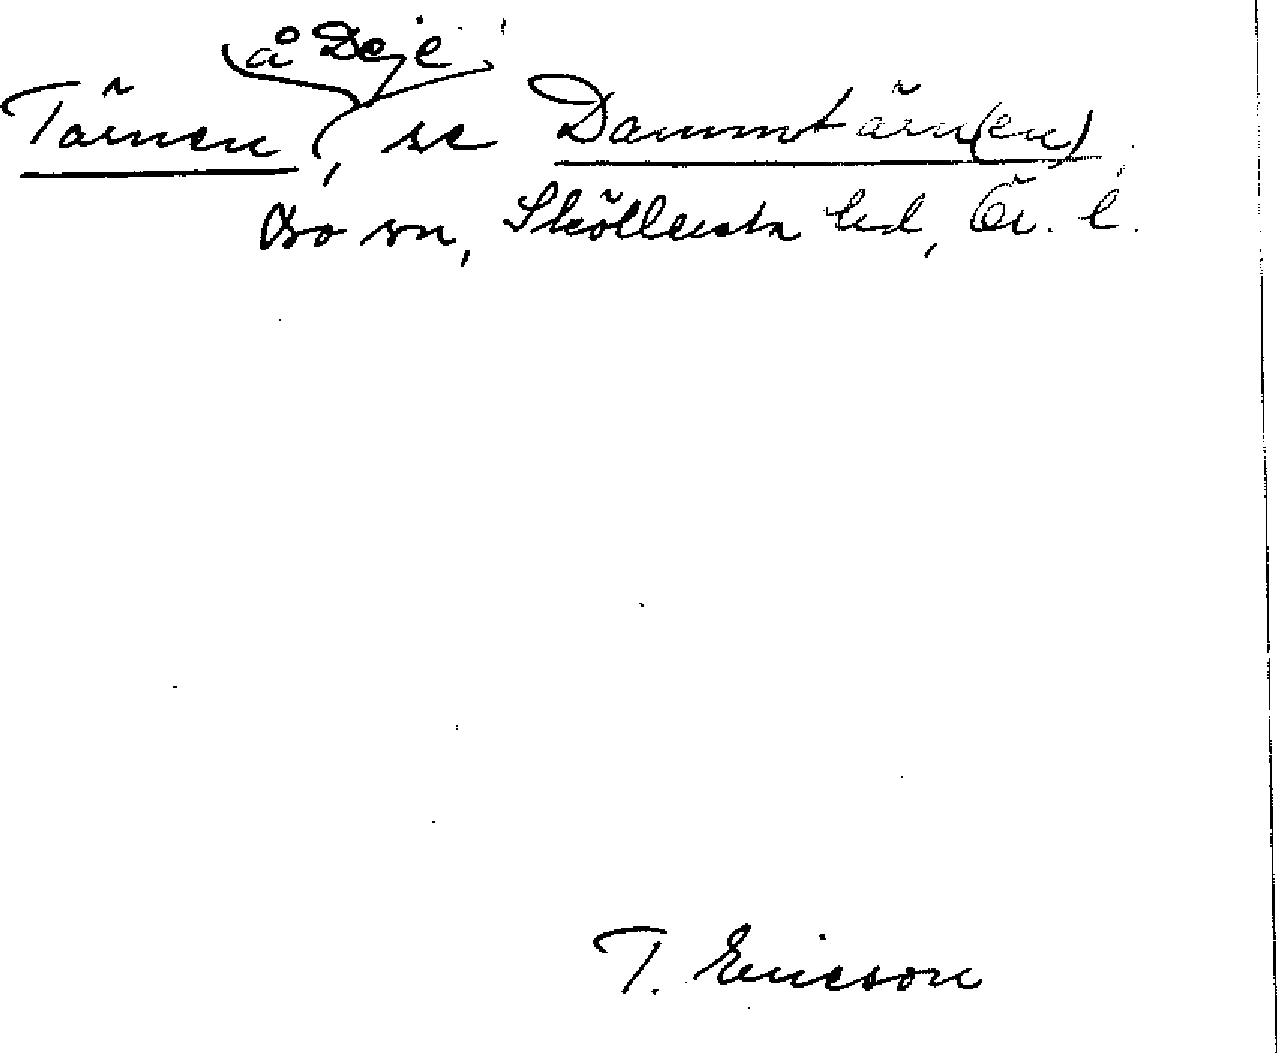 å Deje
Tärnen, se Dammtärn(en)
Bo sn, Sköllersta hd, Ör. l.
T. Ericson